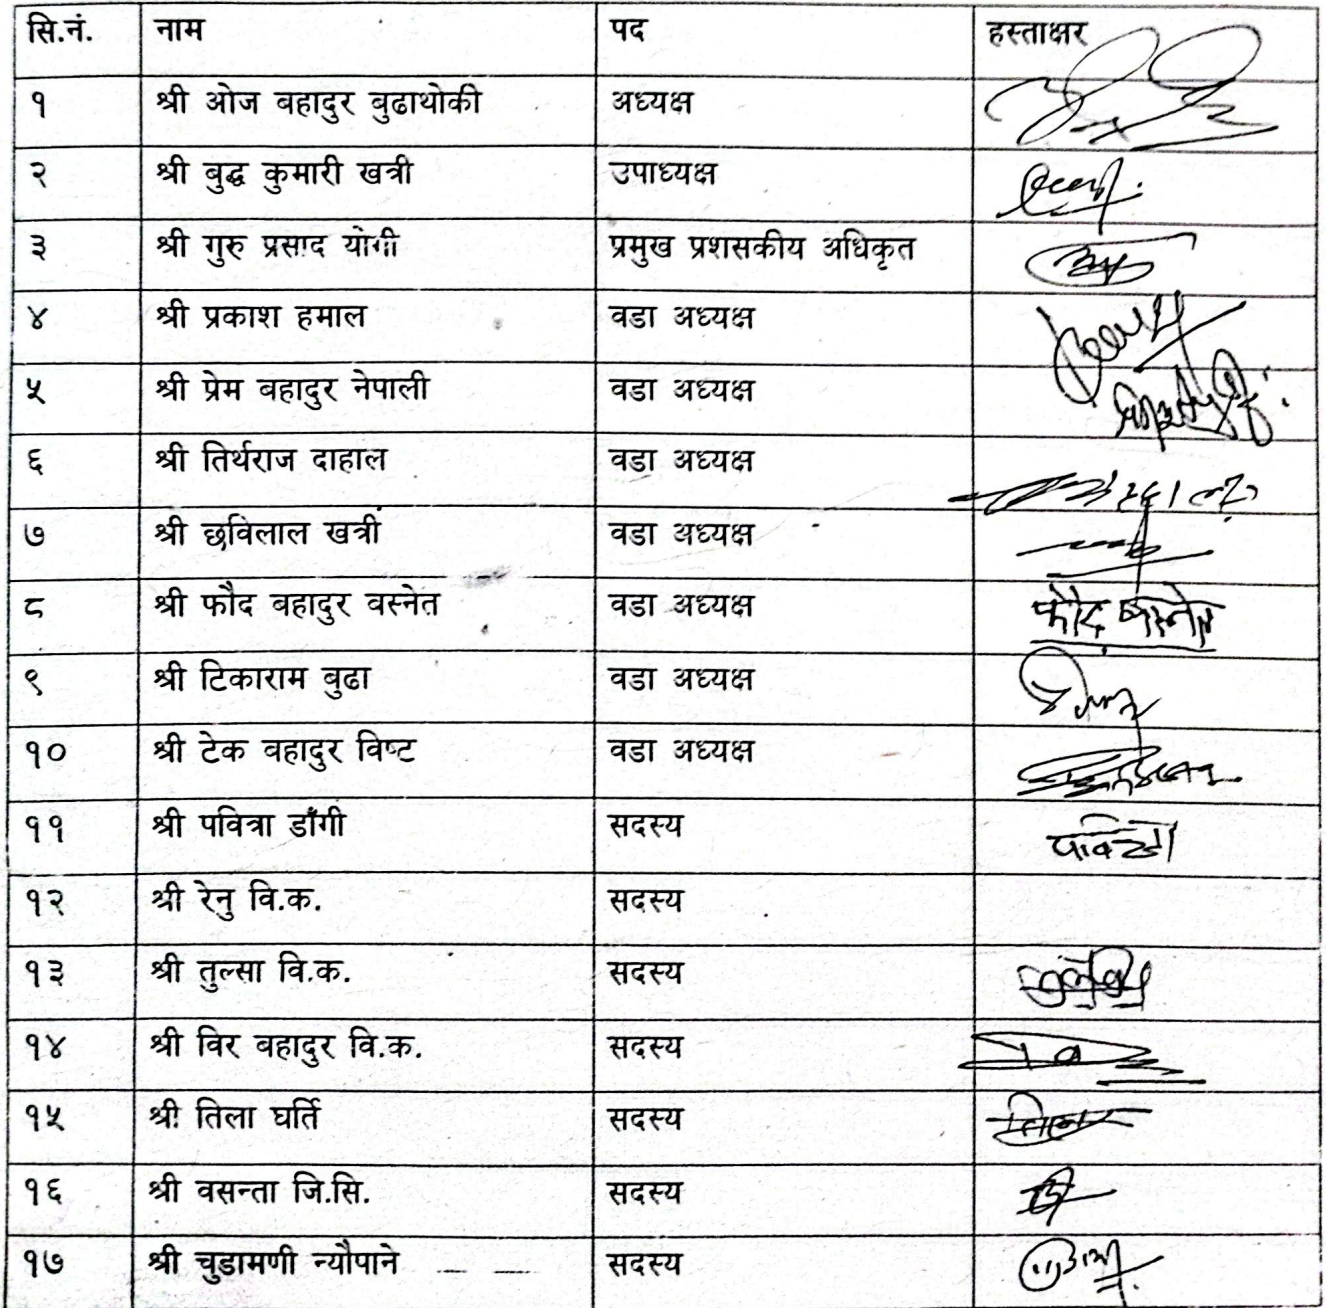 सि.नं. नाम पद हस्ताक्षर
१ श्री ओज बहादुर बुढाथोकी अध्यक्ष
२ श्री बुद्ध कुमारी खत्री उपाध्यक्ष
३ श्री गुरु प्रसाद योगी प्रमुख प्रशसकीय अधिकृत
४ श्री प्रकाश हमाल वडा अध्यक्ष
५ श्री प्रेम बहादुर नेपाली वडा अध्यक्ष
६ श्री तिर्थराज दाहाल वडा अध्यक्ष
७ श्री छविलाल खत्री वडा अध्यक्ष
८ श्री फौद बहादुर वस्नेत वडा अध्यक्ष फौद बस्नेत
९ श्री टिकाराम बुढा वडा अध्यक्ष
१० श्री टेक बहादुर विष्ट वडा अध्यक्ष
११ श्री पवित्रा डाँगी सदस्य पवित्रा
१२ श्री रेनु वि.क. सदस्य
१३ श्री तुल्सा वि.क. सदस्य
१४ श्री विर बहादुर वि.क. सदस्य
१५ श्री तिला घर्ति सदस्य तिला
१६ श्री वसन्ता जि.सि. सदस्य
१७ श्री चुडामणी न्यौपाने सदस्य